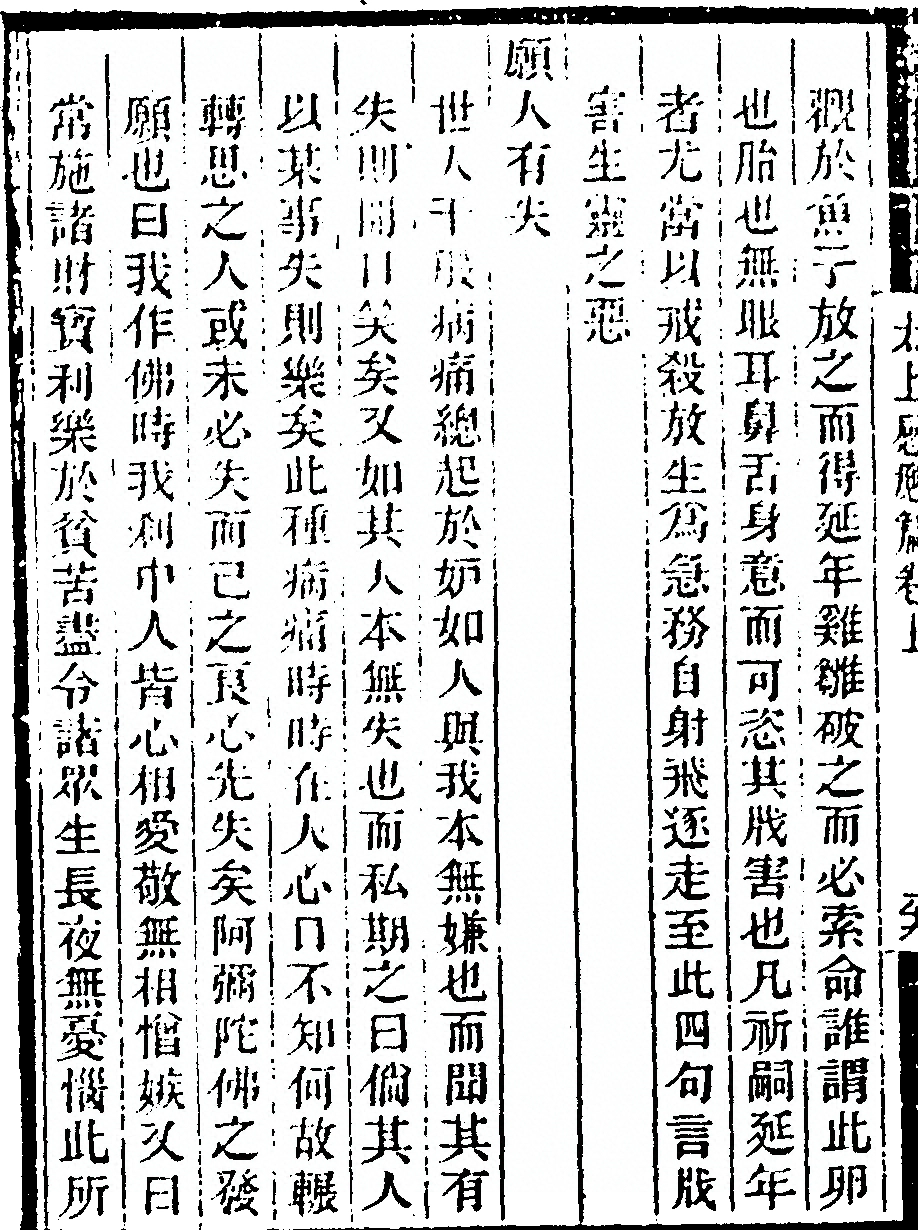 太上感應篇卷上
觀於魚子放之而得延年雞雛破之而必索命誰謂此卵
也胎也無眼耳鼻舌身意而可恣其戕害也凡祈嗣延年
者尤當以戒殺放生爲急務自射飛逐走至此四句言戕
害生靈之惡
願人有失
世人千般病痛總起於妒如人與我本無嫌也而聞其有
失則開口笑矣又如其人本無失也而私期之曰倘其人
以某事失則樂矣此種病痛時時在人心口不知何故輾
轉思之人或未必失而已之良心先失矣阿彌陀佛之發
願也曰我作佛時我刹中人皆心相愛敬無相憎嫉又曰
常施諸財寶利樂於貧苦盡令諸眾生長夜無憂惱此所